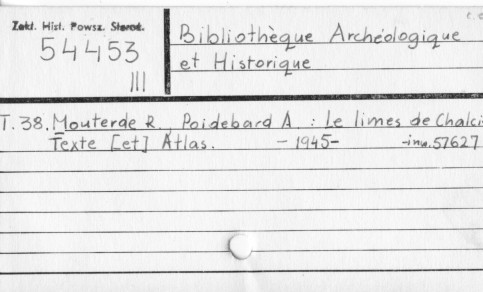 Zakł. Hist. Powsz. Staroż.
54453
III
Bibliothèque Archéologique
et Historique
T. 38. Mouterde R. Poidebard A. : Le limes de Chalcis
Texte [et] Atlas. - 1945- -inw. 57627